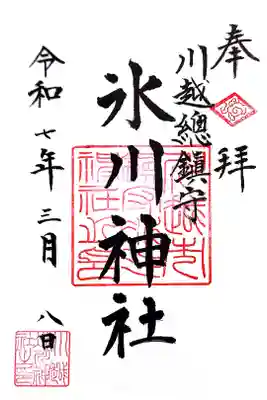 奉拝
川越總鎮守
氷川神社
令和七年三月八日